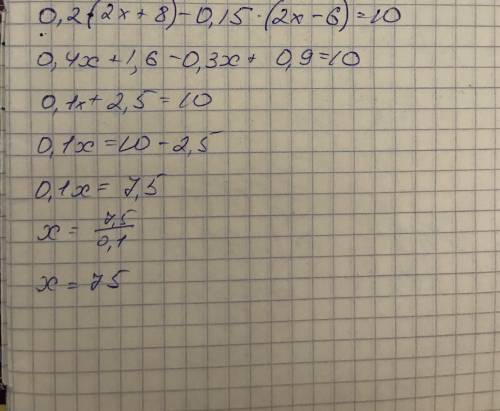 0,2·(2x+8)-0,15·(2x-6)=10
0,4x+1,6-0,3x+ 0,9=10
0,1x+2,5=10
0,1x=10-2,5
0,1x= 7,5
x= 7,5/0,1
x=75